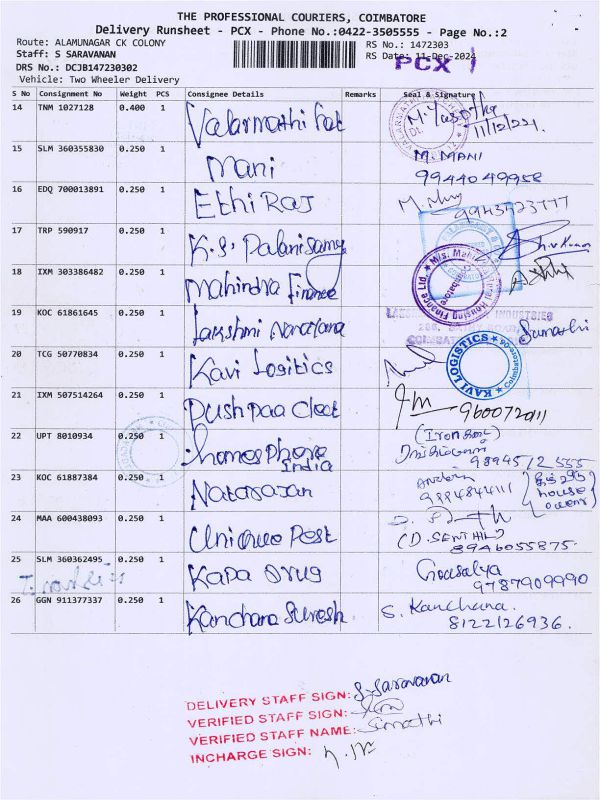 THE PROFESSIONAL COURIERS, COIMBATORE
Delivery Runsheet - PCX - Phone No.:0422-3505555 - Page No.:2
Route: ALAMUNAGAR CK COLONY
RS No.: 1472303
Staff: S SARAVANAN
RS Date: 11-Dec-2024
PCX
DRS No.: DCJB147230302
Vehicle: Two Wheeler Delivery
S No Consignment No Weight PCS Consignee Details Remarks Seal & Signature
14 TNM 1027128 0.400 1 Valarmathi
15 SLM 360355830 0.250 1 Mani M. MANI
9944049958
16 EDQ 700013891 0.250 1 Ethi Raj
17 TRP 590917 0.250 1 K.S. Palanisamy
18 IXM 303386482 0.250 1 Mahindra Finance
19 KOC 61861645 0.250 1 Lakshmi Narayana Sumathi
20 TCG 50770834 0.250 1 Kavi Logitics KAVI LOGISTICS
21 IXM 507514264 0.250 1 Pushpaa Cloot
22 UPT 8010934 0.250 1 India
23 KOC 61887384 0.250 1 Natarajan 9884844111 house owner
24 MAA 600438093 0.250 1 Unique Pest
(D. SENTHIL)
8946055875.
25 SLM 360362495 0.250 1 Kapa Drug Gousalya
9787909990
26 GGN 911377337 0.250 1 Kanchana Suresh S. Kanchana.
8122126936.
DELIVERY STAFF SIGN: S. Saravanan
VERIFIED STAFF SIGN:
VERIFIED STAFF NAME: Sumathi
INCHARGE SIGN: